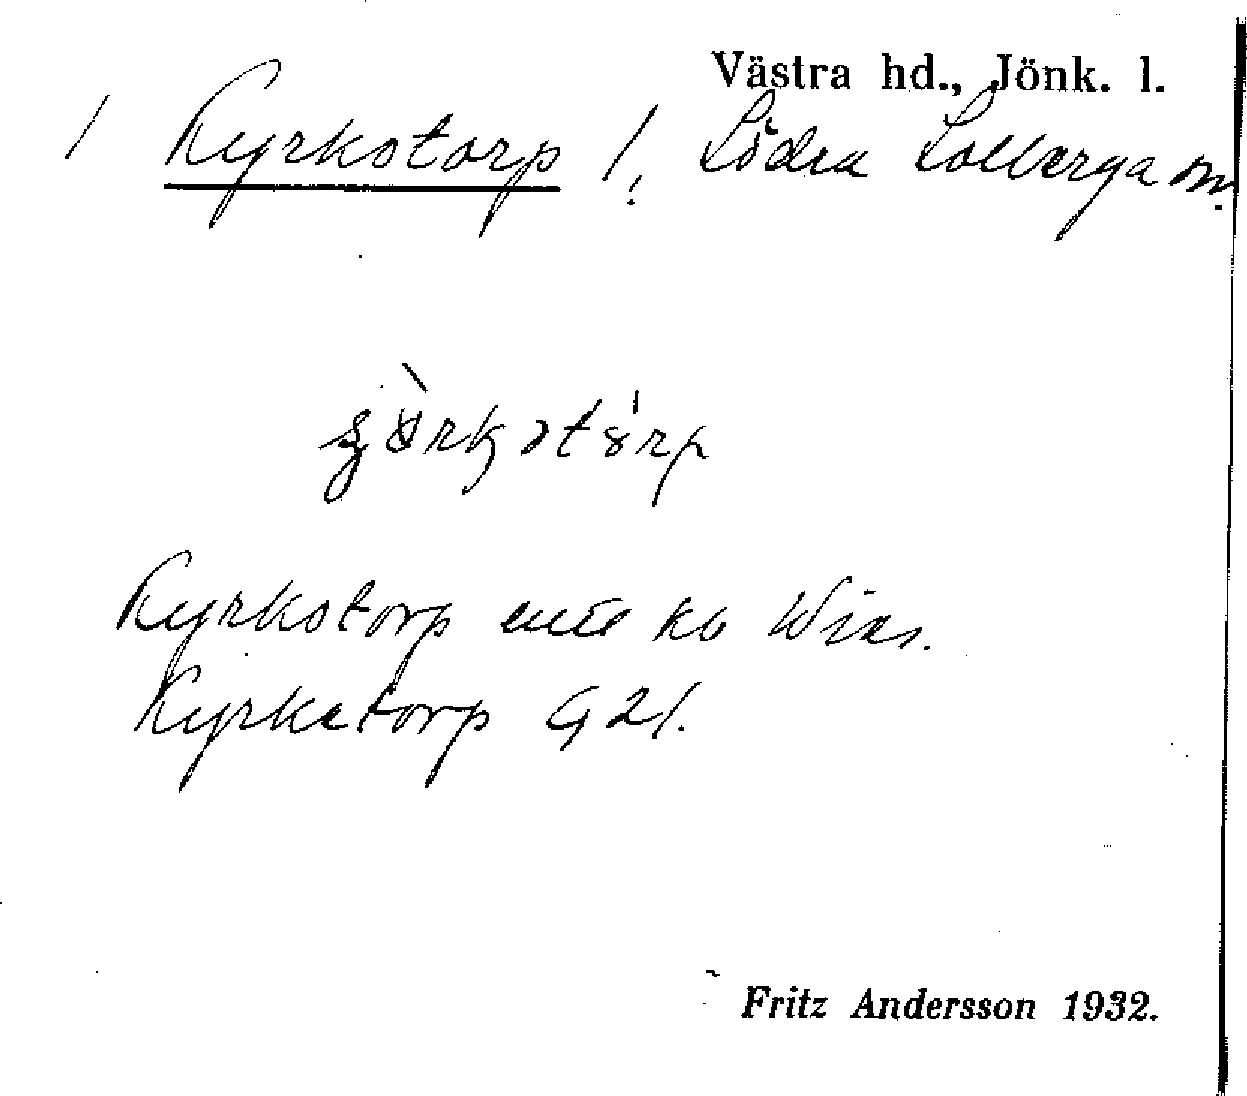 Västra hd., Jönk. l.
/ Kyrkotorp /, Södra Solberga sn.
Kyrkotorp enl ko Wirs.
Kyrketorp G21.
Fritz Andersson 1932.